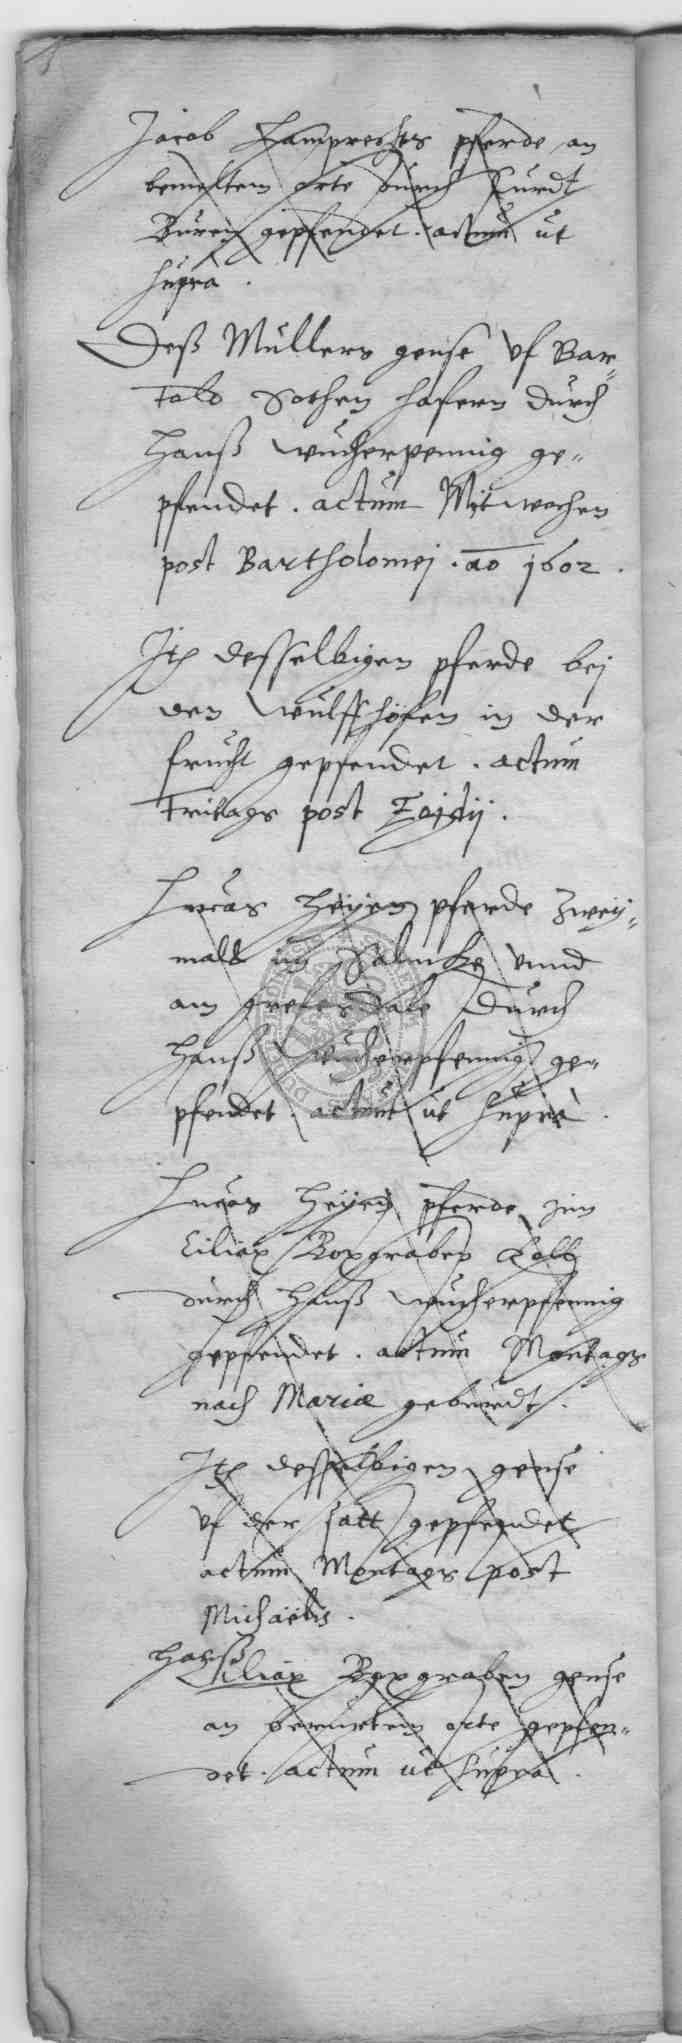 Jacob Lamprechts pferde an
bemeltem orte durch Curdt
Buren gepfendet. actum ut
supra.
Deß Müllers gense uf Bar-
told Sothen hafern durch
Hanß Wucherpennig ge-
pfendet. actum Mitwochen
post Bartholomej. ao 1602.
Itē desselbigen pferde bej
den Wulffhöfen in der
frucht gepfendet. actum
Fritags post Egidij.
Lucas Heÿen pferde zweÿ-
mals im unnd
am durch
Hanß Wucherpfennig ge-
pfendet. actum ut supra.
Lucas Heÿen pferde im
Ciliax Boxgraben
durch Hanß Wucherpfennig
gepfendet. actum Montags
nach Mariæ geburdt.
Itē desselbigen gense
uf der satt gepfendet
actum Montags post
Michaëlis.
Hanß
Ciliax Boxgraben gense
an berurtem orte gepfen-
det. actum ut supra.